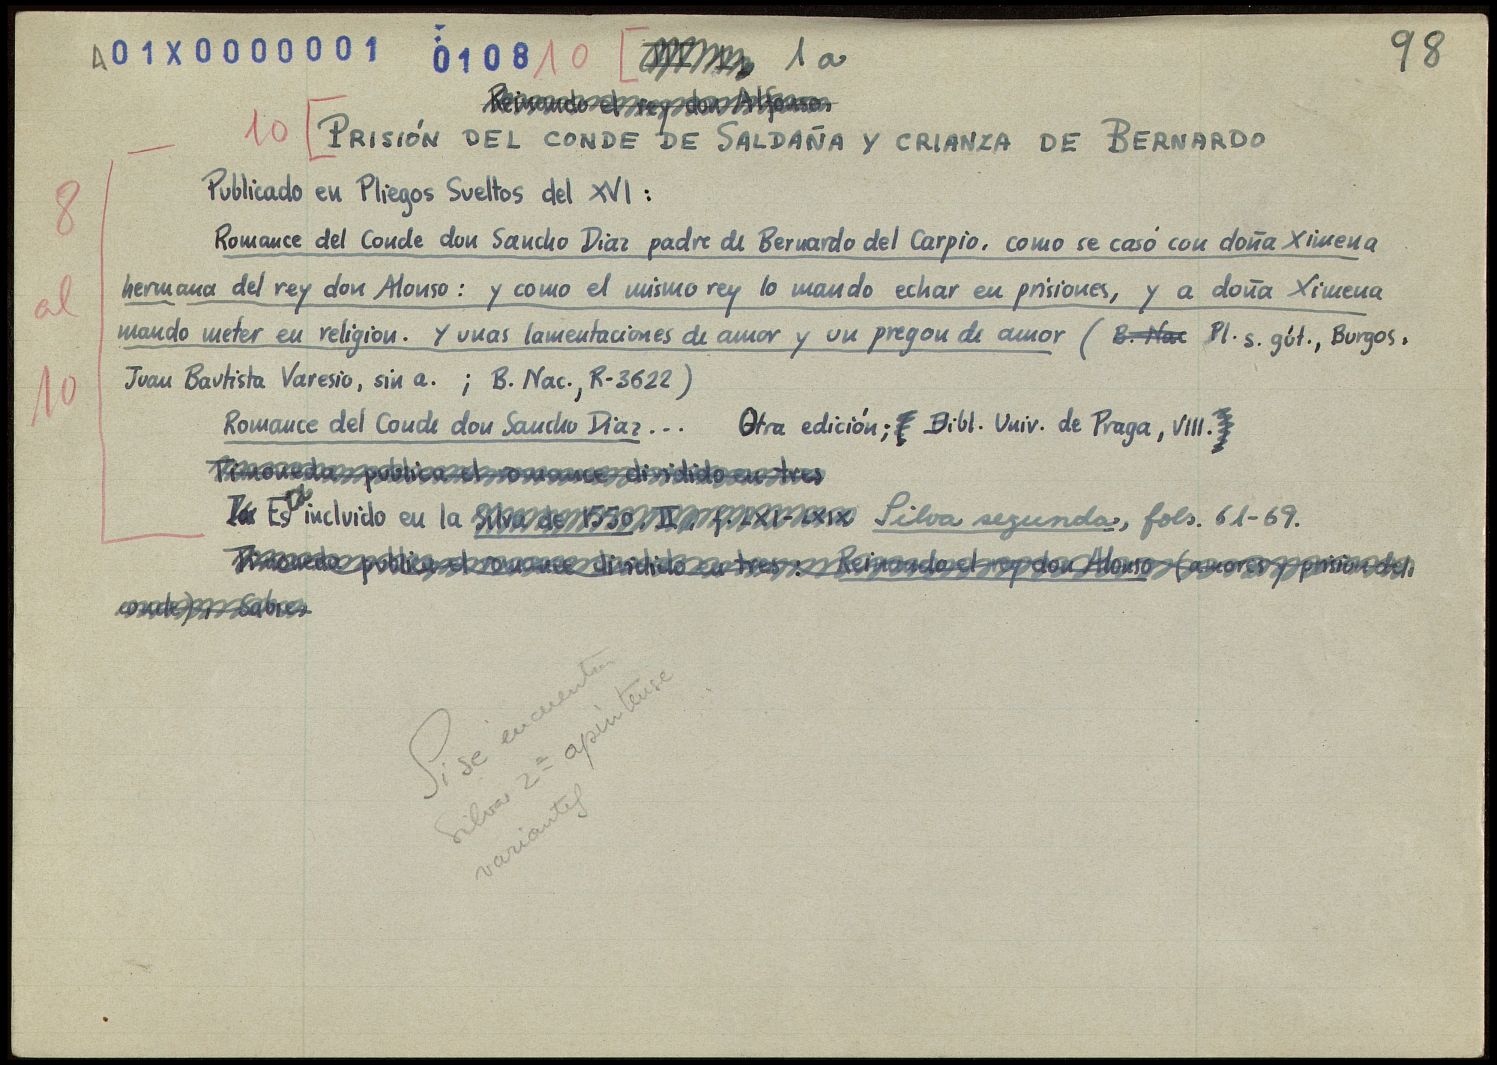 A01X0000001 0108 10 [ 1a 98
Reinando el rey don Alfonso
10 [ PRISIÓN DEL CONDE DE SALDAÑA Y CRIANZA DE BERNARDO
Publicado en Pliegos Sueltos del XVI:
8 al 10
Romance del Conde don Sancho Diaz padre de Bernardo del Carpio. como se casó con doña Ximena
hermana del rey don Alonso: y como el mismo rey lo mando echar en prisiones, y a doña Ximena
mando meter en religion. Y unas lamentaciones de amor y un pregon de amor ( B. Nac Pl. s. gót., Burgos.
Juan Bautista Varesio, sin a. ; B. Nac., R-3622)
Romance del Conde don Sancho Diaz... Otra edición; Bibl. Univ. de Praga, VIII.
Timoneda publica el romance dividido en tres
Está incluido en la Silva de 1550. II. f. LXI-LXIX Silva segunda, fols. 61-69.
Timoneda publica el romance dividido en tres: Reinando el rey don Alonso (amores y prision del
conde); Sabres
Si se encuentra
silva 2ª
variantes